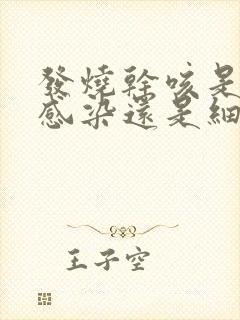 發燒幹咳是
感染還是細
王子空